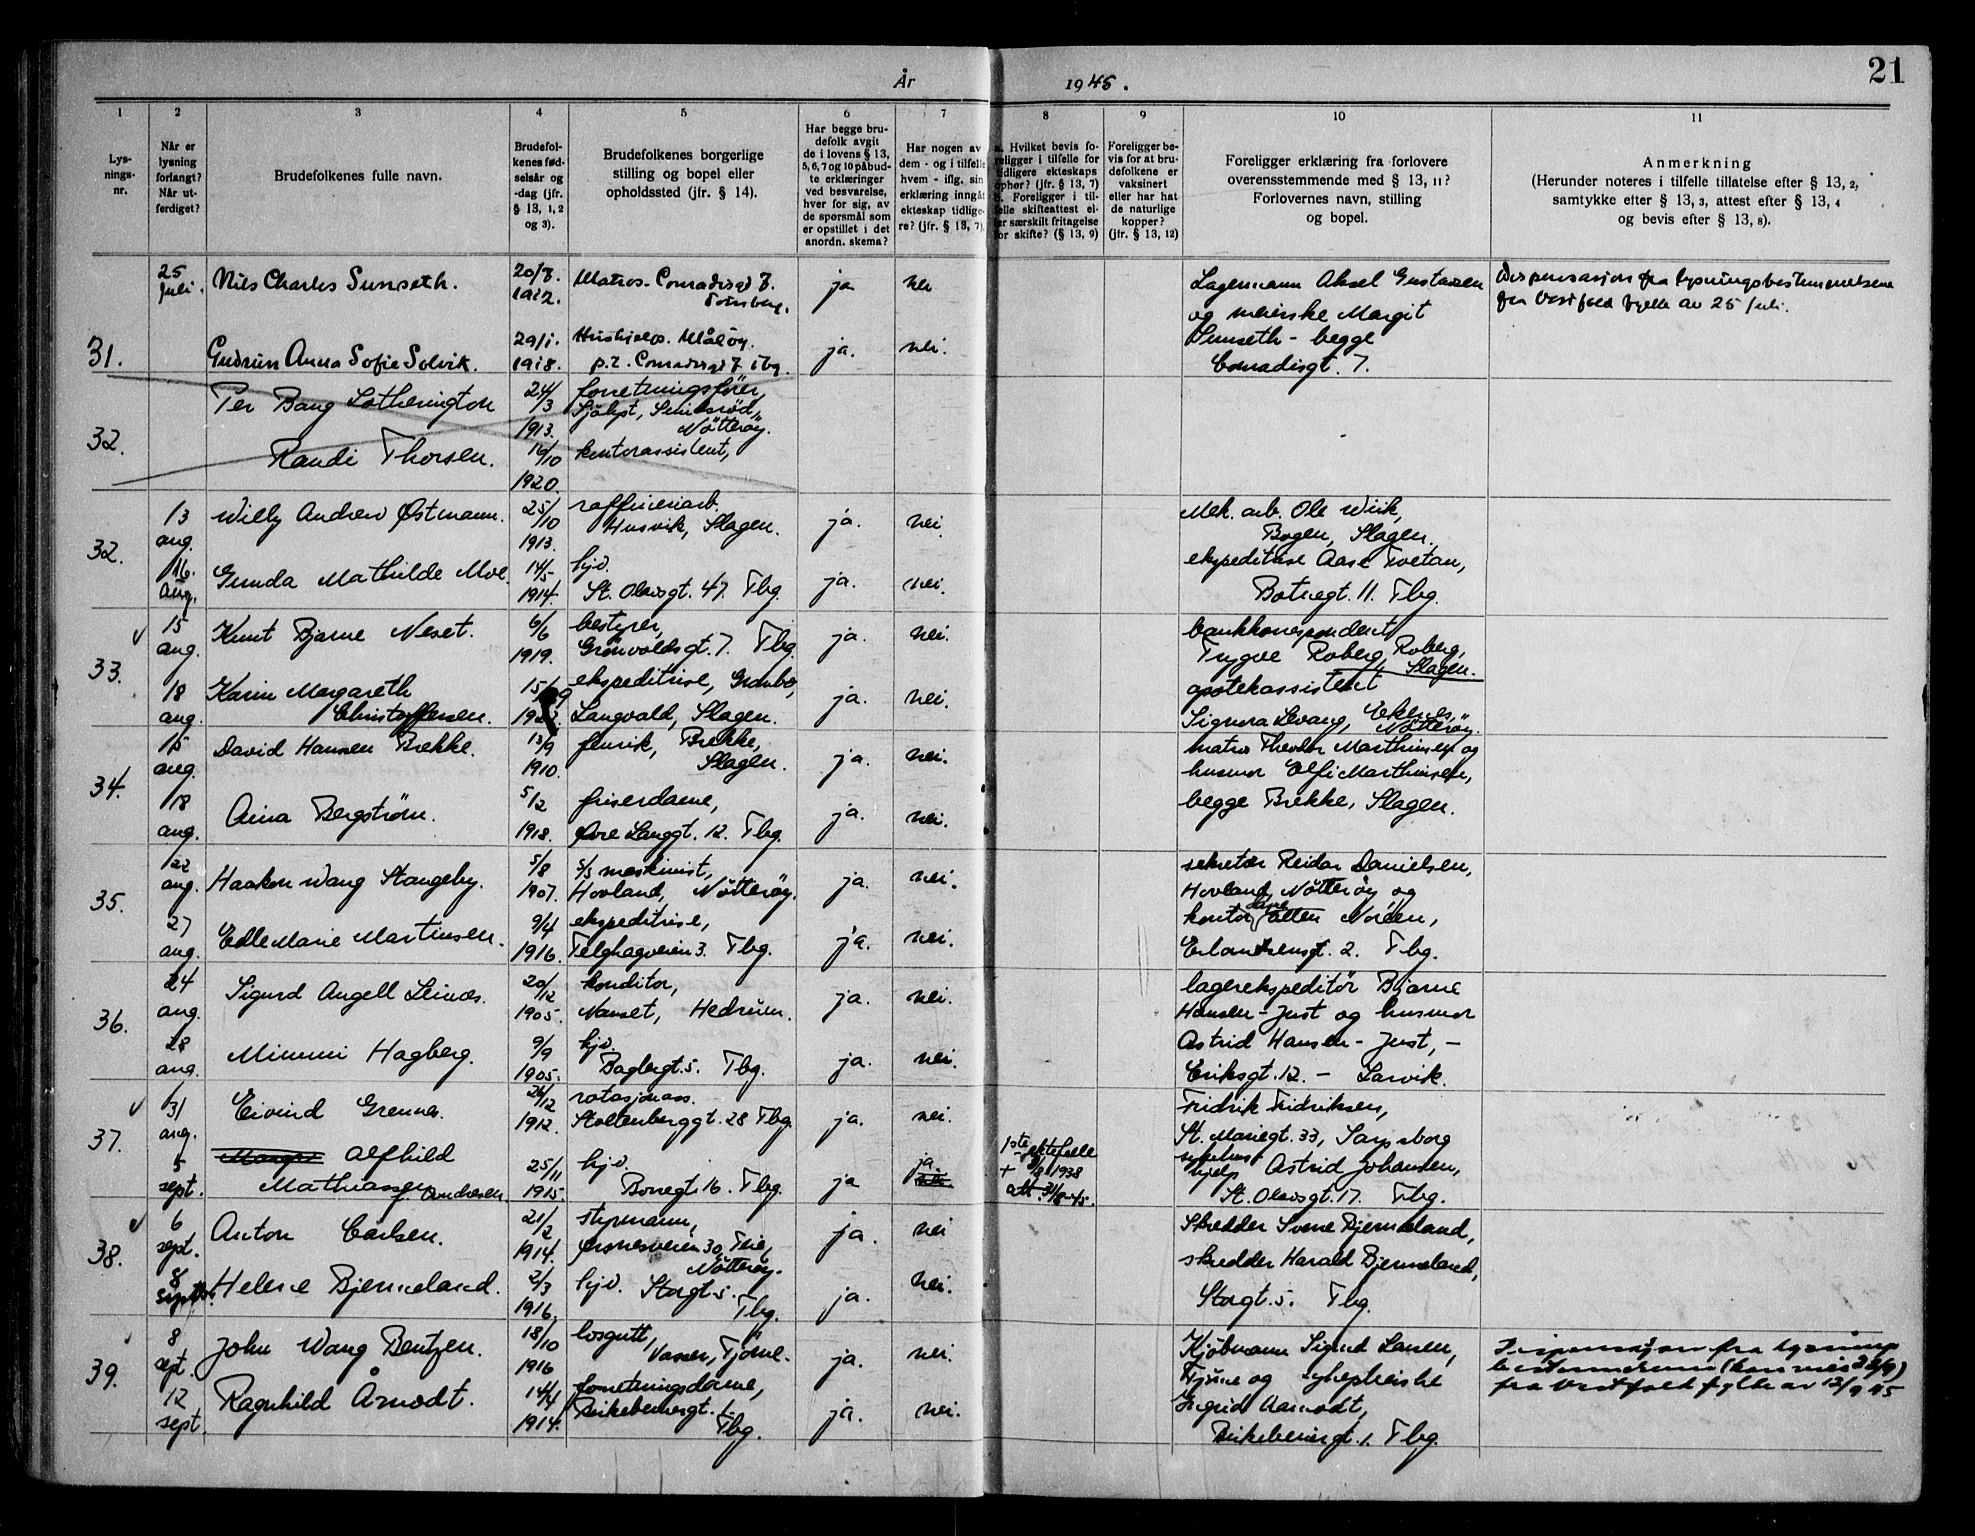 21
År 1945.
1 2 3 4 5 6 7 8 9 10 11
Lys-
nings-
nr.
Når er
lysning
forlangt?
Når ut-
ferdiget?
Brudefolkenes fulle navn.
Brudefol-
kenes fød-
selsår og
-dag (jfr.
§ 13, 1, 2
og 3).
Brudefolkenes borgerlige
stilling og bopel eller
opholdssted (jfr. § 14).
Har begge bru-
defolk avgit
de i lovens § 13,
5, 6, 7 og 10 påbud-
te erklæringer
ved besvarelse,
hver for sig, av
de spørsmål som
er opstillet i det
anordn. skema?
Har nogen av
dem - og i tilfelle
hvem - iflg. sin
erklæring inngåt
ekteskap tidlige-
re? (jfr. § 13, 7)
a. Hvilket bevis fo-
religger i tilfelle for
tidligere ekteskaps
ophør? (jfr. § 13, 7)
b. Foreligger i til-
felle skifteattest el-
ler særskilt fritagelse
for skifte? (§ 13, 9)
Foreligger be-
vis for at bru-
defolkene er
vaksinert
eller har hat
de naturlige
kopper?
(jfr. § 13, 12)
Foreligger erklæring fra forlovere
overensstemmende med § 13, 11?
Forlovernes navn, stilling
og bopel.
Anmerkning
(Herunder noteres i tilfelle tillatelse efter § 13, 2,
samtykke efter § 13, 3, attest efter § 13, 4
og bevis efter § 13, 8).
31.
25
juli.
Nils Charles Sunseth.
20/8.
1912.
Matros. Conradisgt 7.
Tönsberg.
ja
nei
Gudrun Anna Sofie Solvik.
29/1.
1918.
Hushjelp. Måløy.
p.t. Conradisgt 7 Tbg.
ja.
nei.
Lagermann Aksel Gustavsen
og Margit
Sunseth - begge
Conradisgt. 7.
Dispensasjon fra lysningsbestemmelsene
fra Vestfold fylke av 25 juli.
32.
Per Bang Lotherington
24/
/3
1913.
forretningsfører,
Nötteröy.
Randi Thorsen.
16/
/10
1920.
kontorassistent,
32.
13
aug.
16.
aug.
Willy Andrew Østmann.
25/
/10
1913.
raffineriarb.
Husvik, Slagen.
ja.
nei.
Gunda Mathilde Moe.
14/
/5
1914.
hjv.
St. Olavsgt. 47. Tbg.
ja.
nei.
Mek. arb. Ole Wiik,
Bogen, Slagen.
ekspeditrise Aase Tvetan,
Botnegt. 11. Tbg.
33.
15
aug.
18
aug.
Knut Bjarne Neset.
6/
/6
1919.
bestyrer,
Grönvoldsgt. 7. Tbg.
ja.
nei.
Karin Margareth
Christoffersen.
15/
/9
ekspeditrise,
Langvald, Slagen.
ja.
nei.
bankkorrespondent
Trygve Roberg, Roberg,
Slagen.
apotekassistent
Signora Levang, Ekenes,
Nötteröy.
34.
15
aug.
18
aug.
David Hansen Brekke.
13/
/9
1910.
fenrik, Brekke,
Slagen.
ja.
nei.
Aina Bergström.
5/2
1918.
friserdame,
Øvre Langgt. 12. Tbg.
ja.
nei.
matros Theodor Marthinsen og
husmor Elfi Marthinsen,
begge Brekke, Slagen.
35.
22
aug.
27
aug.
Haakon Wang Stangeby.
5/8
1907.
s/s maskinist,
Hovland, Nötteröy.
ja.
nei.
Edle Marie Martinsen.
9/4
1916.
ekspeditrise,
Telghagveien 3. Tbg.
ja.
nei.
sekretær Reidar Danielsen,
Hovland, Nötteröy og
kontordame Ellen Noreen,
Erlandsensgt. 2. Tbg.
36.
24
aug.
28
aug.
Sigurd Angell Leinæs.
20/
/12
1905.
konditor,
Nanset, Hedrum.
ja.
nei.
Mimmi Hagberg.
9/9
1905.
hjv.
Baglergt. 5. Tbg.
ja.
nei.
lagerekspeditör Bjarne
Hansen-Just og husmor
Astrid Hansen-Just, -
Eriksgt. 12. - Larvik.
37.
31
aug.
5
sept.
Eivind Grennes.
26/12
1912.
rotasjonass.
Stoltenberggt. 28 Tbg.
ja.
nei.
Alfhild
Mathiassen f. Andresen.
25/
/11
1915.
hjv.
Bonegt. 16. Tbg.
ja
ja
nei.
1ste ektefelle
+ 3/8 1938
att. 31/8-45.
Fridrik Fridriksen,
St. Mariegt. 33, Sarpsborg
sykehus
hjelp Astrid Johansen,
St. Olavsgt. 17. Tbg.
38.
6
sept.
8
sept.
Anton Carlsen.
21/
/2
1914.
styrmann,
Ørsnesveien 30, Teie,
Nötteröy.
ja.
nei
Helene Bjerneland.
2/3
1916.
hjv. Storgt. 5.
Tbg.
ja.
nei.
Skredder Sverre Bjerneland,
skredder Harald Bjerneland,
Storgt. 5. Tbg.
39.
8
sept.
12
sept.
John Wang Bentzen.
18/
/10
1916
losgutt,
Vasser, Tjöme.
ja.
nei.
Ragnhild Årnodt.
14/
/4
1914.
forretningsdame,
Birkebeinergt. 1.
Tbg.
ja.
nei.
Kjöbmann Sigurd Larsen,
Tjöme og sykepleierske
Ingrid Aarnodt,
Birkebeinergt. 1. Tbg.
Dispensasjon fra lysnings
fra Vestfold fylke av 12/9 45